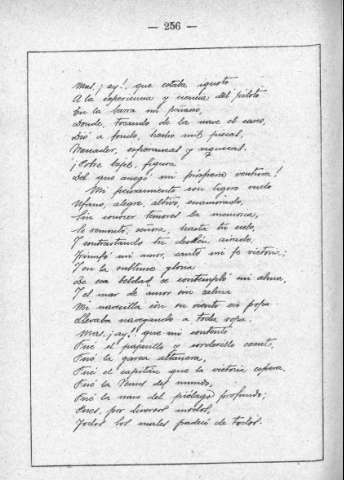 — 256 —
Mas, ¡ay!, que estaba ignoto
A la experiencia y ciencia del piloto
En la barra un peñasco,
Donde, tocando de la nave el casco,
Dió á fondo, hecho mil piezas,
Mercader, esperanzas y riquezas.
¡Pobre bajel, figura
Del que anegó mi próspera ventura!
Mi pensamiento con ligero vuelo
Ufano, alegre, altivo, enamorado,
Sin conocer temores la memoria,
Se remontó, señora, hasta tu cielo,
Y contrastando tu desdén airado,
Triunfó mi amor, cantó mi fe victoria;
Y en la sublime gloria
De esa beldad se contempló mi alma,
Y el mar de amor sin calma
Mi navecilla con su viento en popa
Llevaba navegando á toda ropa.
Mas, ¡ay!, que mi contento
Fué el pajarillo y corderillo exento,
Fué la garza altanera,
Fué el capitán que la victoria espera,
Fué la Venus del mundo,
Fué la nave del piélago profundo;
Pues, por diversos modos,
Todos los males padecí de todos.